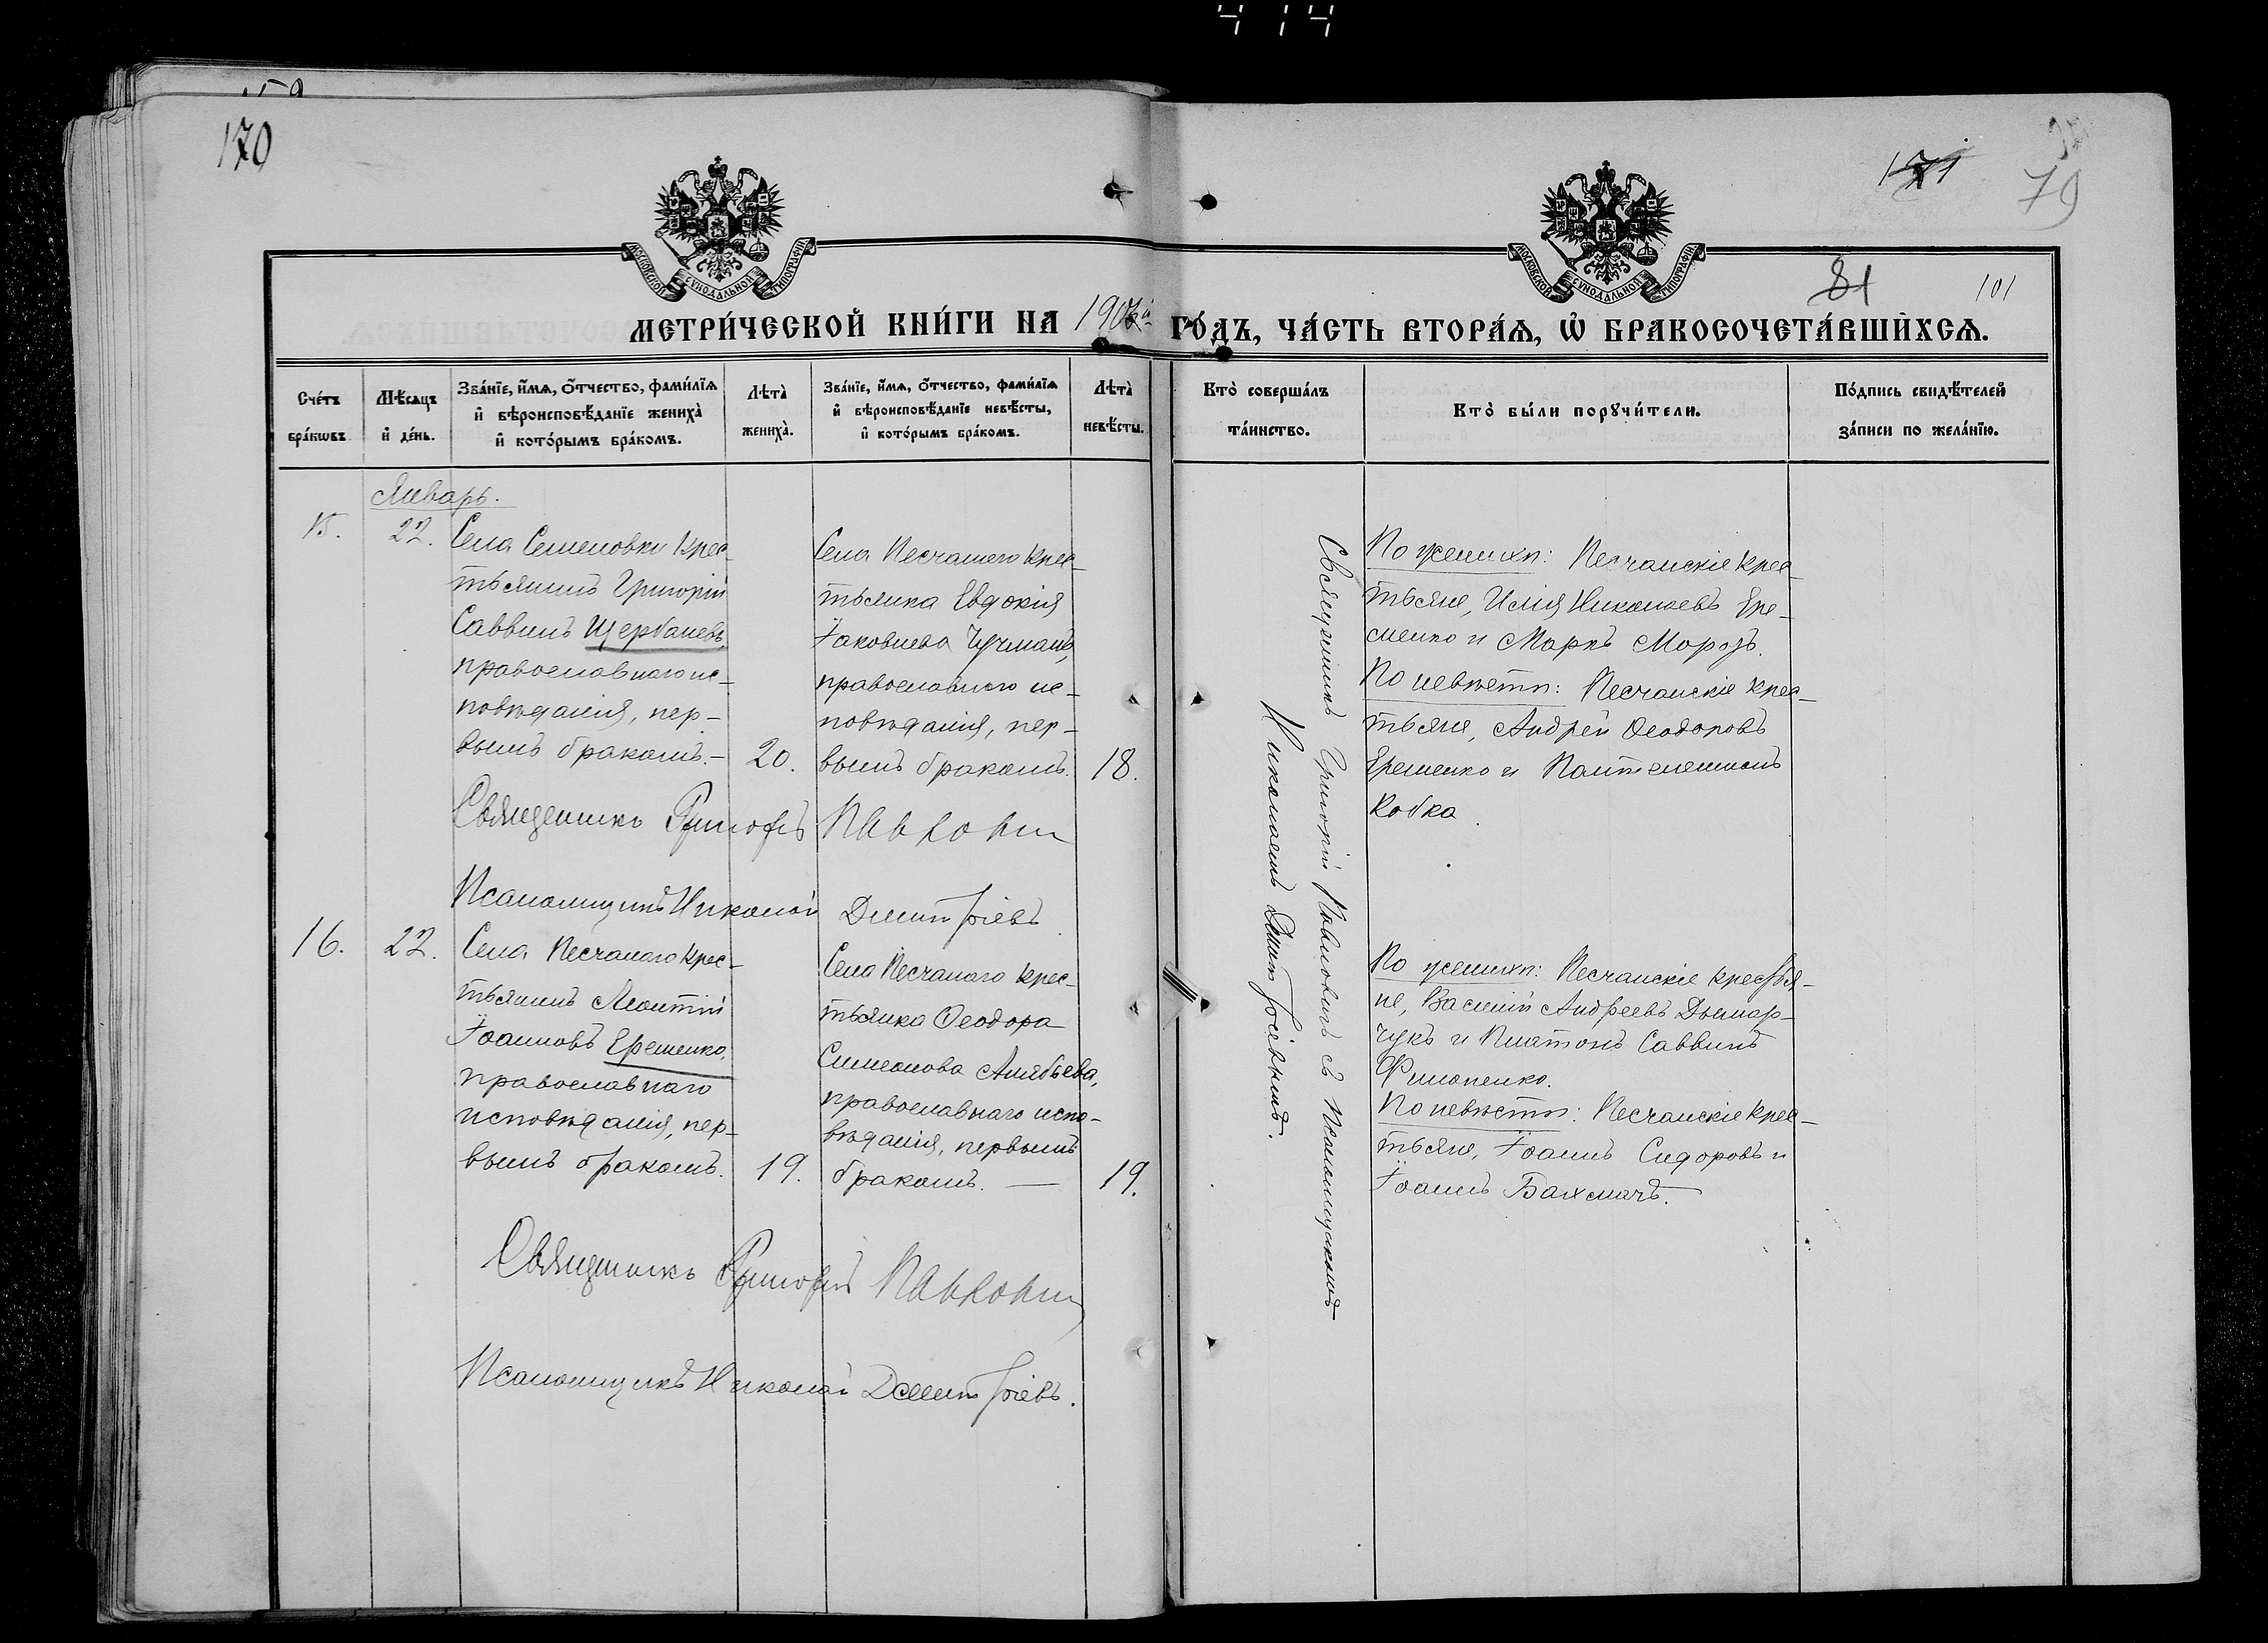 414
170
171
79
81
101
МОСКОВСКОЙ СУНОДАЛЬНОЙ ТИПОГРАФІИ
МОСКОВСКОЙ СУНОДАЛЬНОЙ ТИПОГРАФІИ
МЕТРИ́ЧЕСКОЙ КНИ́ГИ НА
ГО́ДЪ, ЧА́СТЬ ВТОРА́Ѧ, Ѡ҆ БРАКОСОЧЕТА́ВШИХСѦ.
Сче́тъ
бра́кѡвъ.
Мѣ́сѧцъ
и҆ де́нь.
Зва́нїе, и҆́мѧ, ѻ҆́тчество, фами́лїѧ
и҆ вѣроисповѣ́данїе жениха̀
и҆ кото́рымъ бра́комъ.
Лѣта̀
жениха̀.
Зва́нїе, и҆́мѧ, ѻ҆́тчество, фами́лїѧ
и҆ вѣроисповѣ́данїе невѣ́сты,
и҆ кото́рымъ бра́комъ.
Лѣта̀
невѣ́сты.
Кто̀ соверша́лъ
та́инство.
Кто̀ бы́ли порꙋчи́тели.
По́дпись свидѣ́телей
за́писи по жела́нїю.
Январь.
15.
22.
Села Семеновки крес-
тьянинъ Григорій
Саввинъ Щербаневъ,
православнаго ис-
повѣданія, пер-
вымъ бракомъ.-
20.
Села Песчанаго крес-
тьянка Евдокія
Іаковлева Чучманъ,
православнаго ис-
повѣданія, пер-
вымъ бракомъ.
18.
Священникъ Григорій Павловичъ съ Псаломщикомъ
Николаемъ Димитріевымъ.
По женихѣ: Песчанскіе крес-
тьяне, Илія Николаевъ Ере-
менко и Маркъ Морозъ.
По невѣстѣ: Песчанскіе крес-
тьяне, Андрей Ѳеодоровъ
Еременко и Пантелеимонъ
Кобка.
Священникъ Григорій Павловичъ
Псаломщикъ Николай Димитріевъ.
16.
22.
Села Песчанаго крес-
тьянинъ Леонтій
Іоанновъ Еременко,
православнаго
исповѣданія, пер-
вымъ бракомъ.
19.
Села Песчанаго крес-
тьянка Ѳеодора
Симеонова Алябьева,
православнаго испо-
вѣданія, первымъ
бракомъ. —
19.
По женихѣ: Песчанскіе крестья-
не, Василій Андреевъ Дымар-
чукъ и Платонъ Саввинъ
Филопенко.
По невѣстѣ: Песчанскіе крес-
тьяне, Іоаннъ Сидоровъ и
Іоаннъ Бахмачъ.
Священникъ Григорій Павловичъ
Псаломщикъ Николай Димитріевъ.